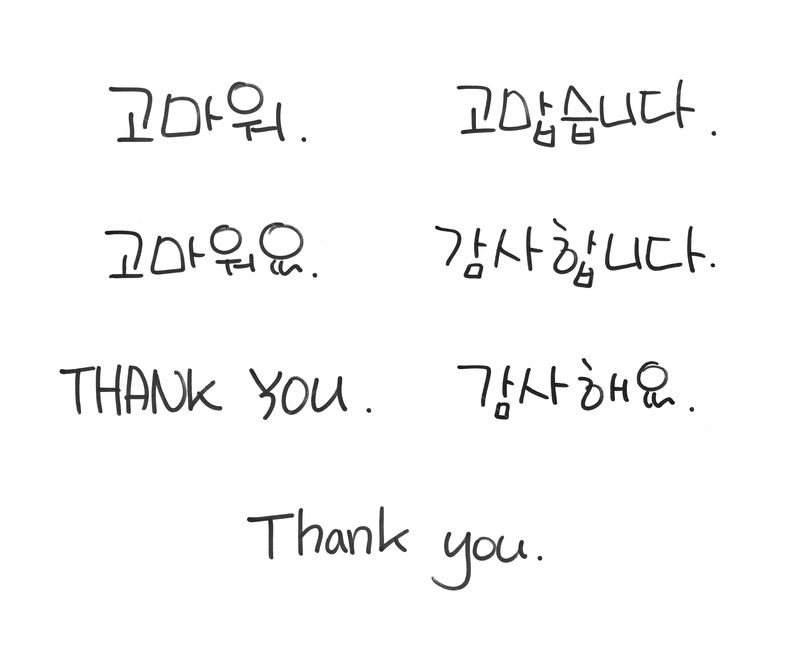 고마워.
고맙습니다.
고마워요.
감사합니다.
THANK YOU.
감사해요.
Thank you.